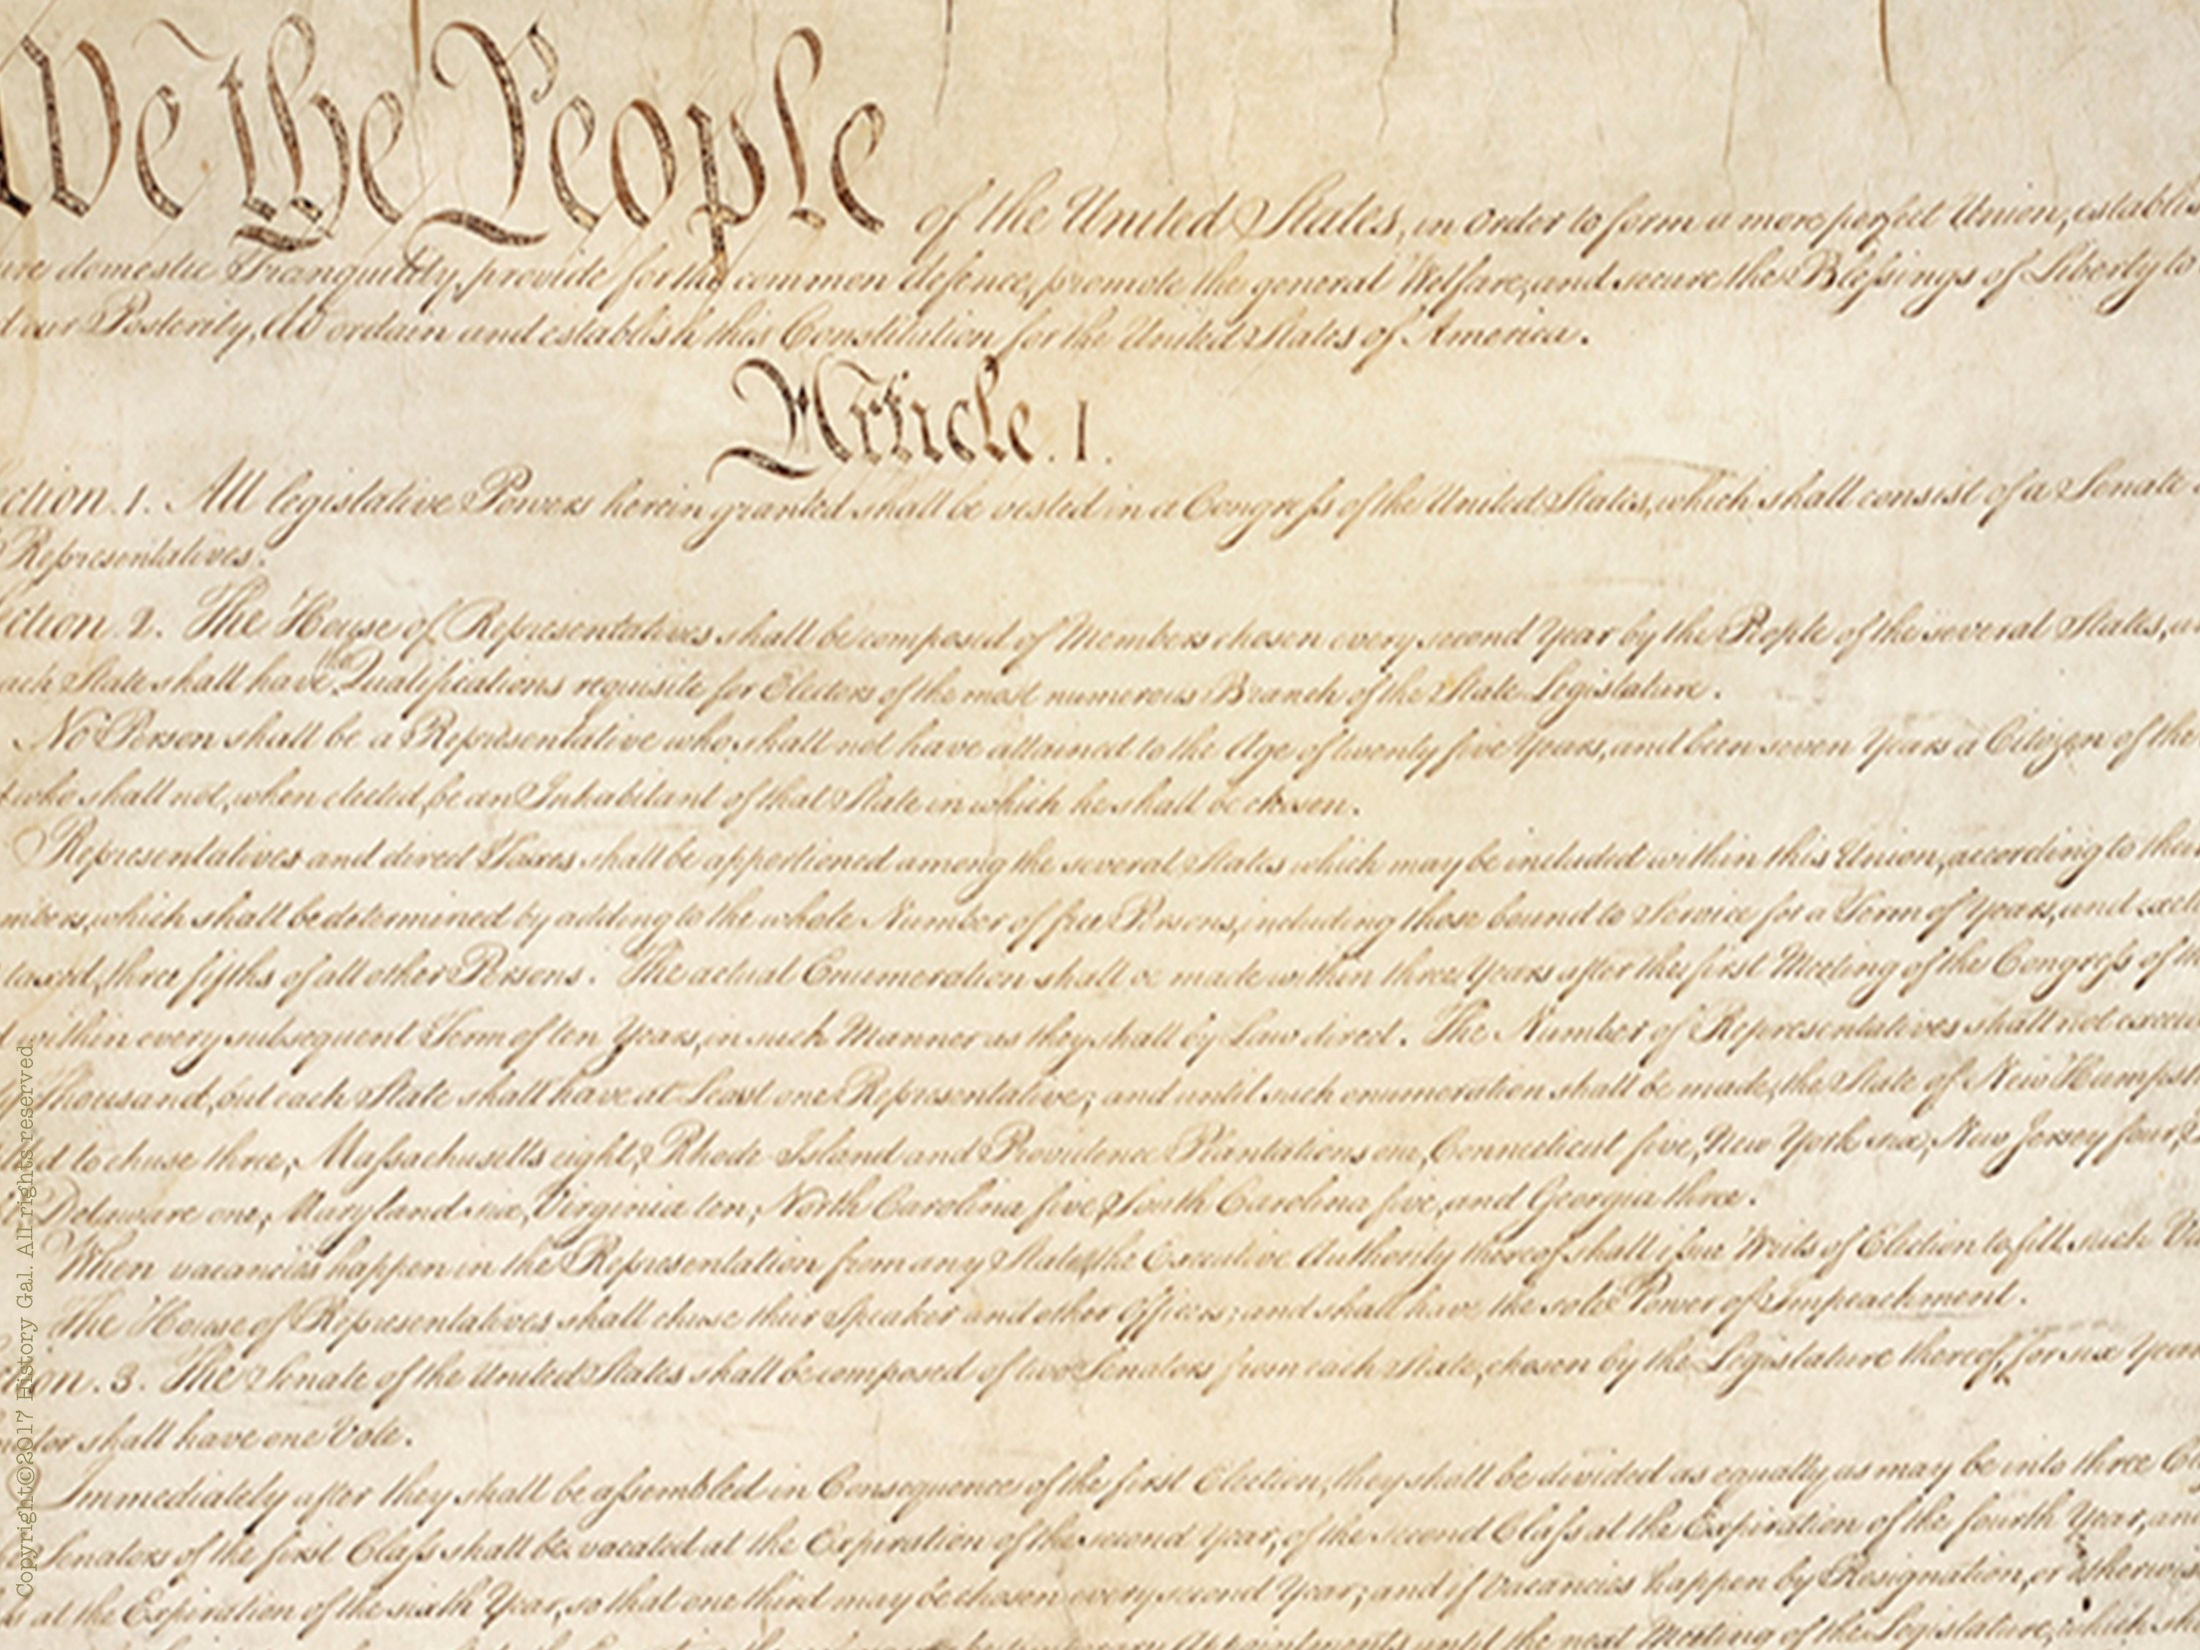 We the People of the United States, in Order to form a more perfect Union, establis
ure domestic Tranquility, provide for the common defence, promote the general Welfare, and secure the Blessings of Liberty to
d our Posterity, do ordain and establish this Constitution for the United States of America.
Article. I.
ction. 1. All legislative Powers herein granted shall be vested in a Congress of the United States, which shall consist of a Senate
Representatives.
ction. 2. The House of Representatives shall be composed of Members chosen every second Year by the People of the several States, a
ach State shall have the Qualifications requisite for Electors of the most numerous Branch of the State Legislature.
No Person shall be a Representative who shall not have attained to the Age of twenty five Years, and been seven Years a Citizen of the
who shall not, when elected, be an Inhabitant of that State in which he shall be chosen.
Representatives and direct Taxes shall be apportioned among the several States which may be included within this Union, according to thei
mbers, which shall be determined by adding to the whole Number of free Persons, including those bound to Service for a Term of Years, and excl
taxed, three fifths of all other Persons. The actual Enumeration shall be made within three Years after the first Meeting of the Congress of th
d within every subsequent Term of ten Years, in such Manner as they shall by Law direct. The Number of Representatives shall not excee
y Thousand, but each State shall have at Least one Representative; and until such enumeration shall be made, the State of New Hampsh
tled to chuse three, Massachusetts eight, Rhode-Island and Providence Plantations one, Connecticut five, New-York six, New Jersey four,
Delaware one, Maryland six, Virginia ten, North Carolina five, South Carolina five, and Georgia three.
When vacancies happen in the Representation from any State, the Executive Authority thereof shall issue Writs of Election to fill such Va
The House of Representatives shall chuse their Speaker and other Officers; and shall have the sole Power of Impeachment.
tion. 3. The Senate of the United States shall be composed of two Senators from each State, chosen by the Legislature thereof, for six Year
nator shall have one Vote.
Immediately after they shall be assembled in Consequence of the first Election, they shall be divided as equally as may be into three Cl
Senators of the first Class shall be vacated at the Expiration of the second Year, of the second Class at the Expiration of the fourth Year, and
ss at the Expiration of the sixth Year, so that one third may be chosen every second Year; and if Vacancies happen by Resignation, or otherwis
temporary Appointments until the next Meeting of the Legislature, which sha
Copyright©2017 History Gal. All rights reserved.